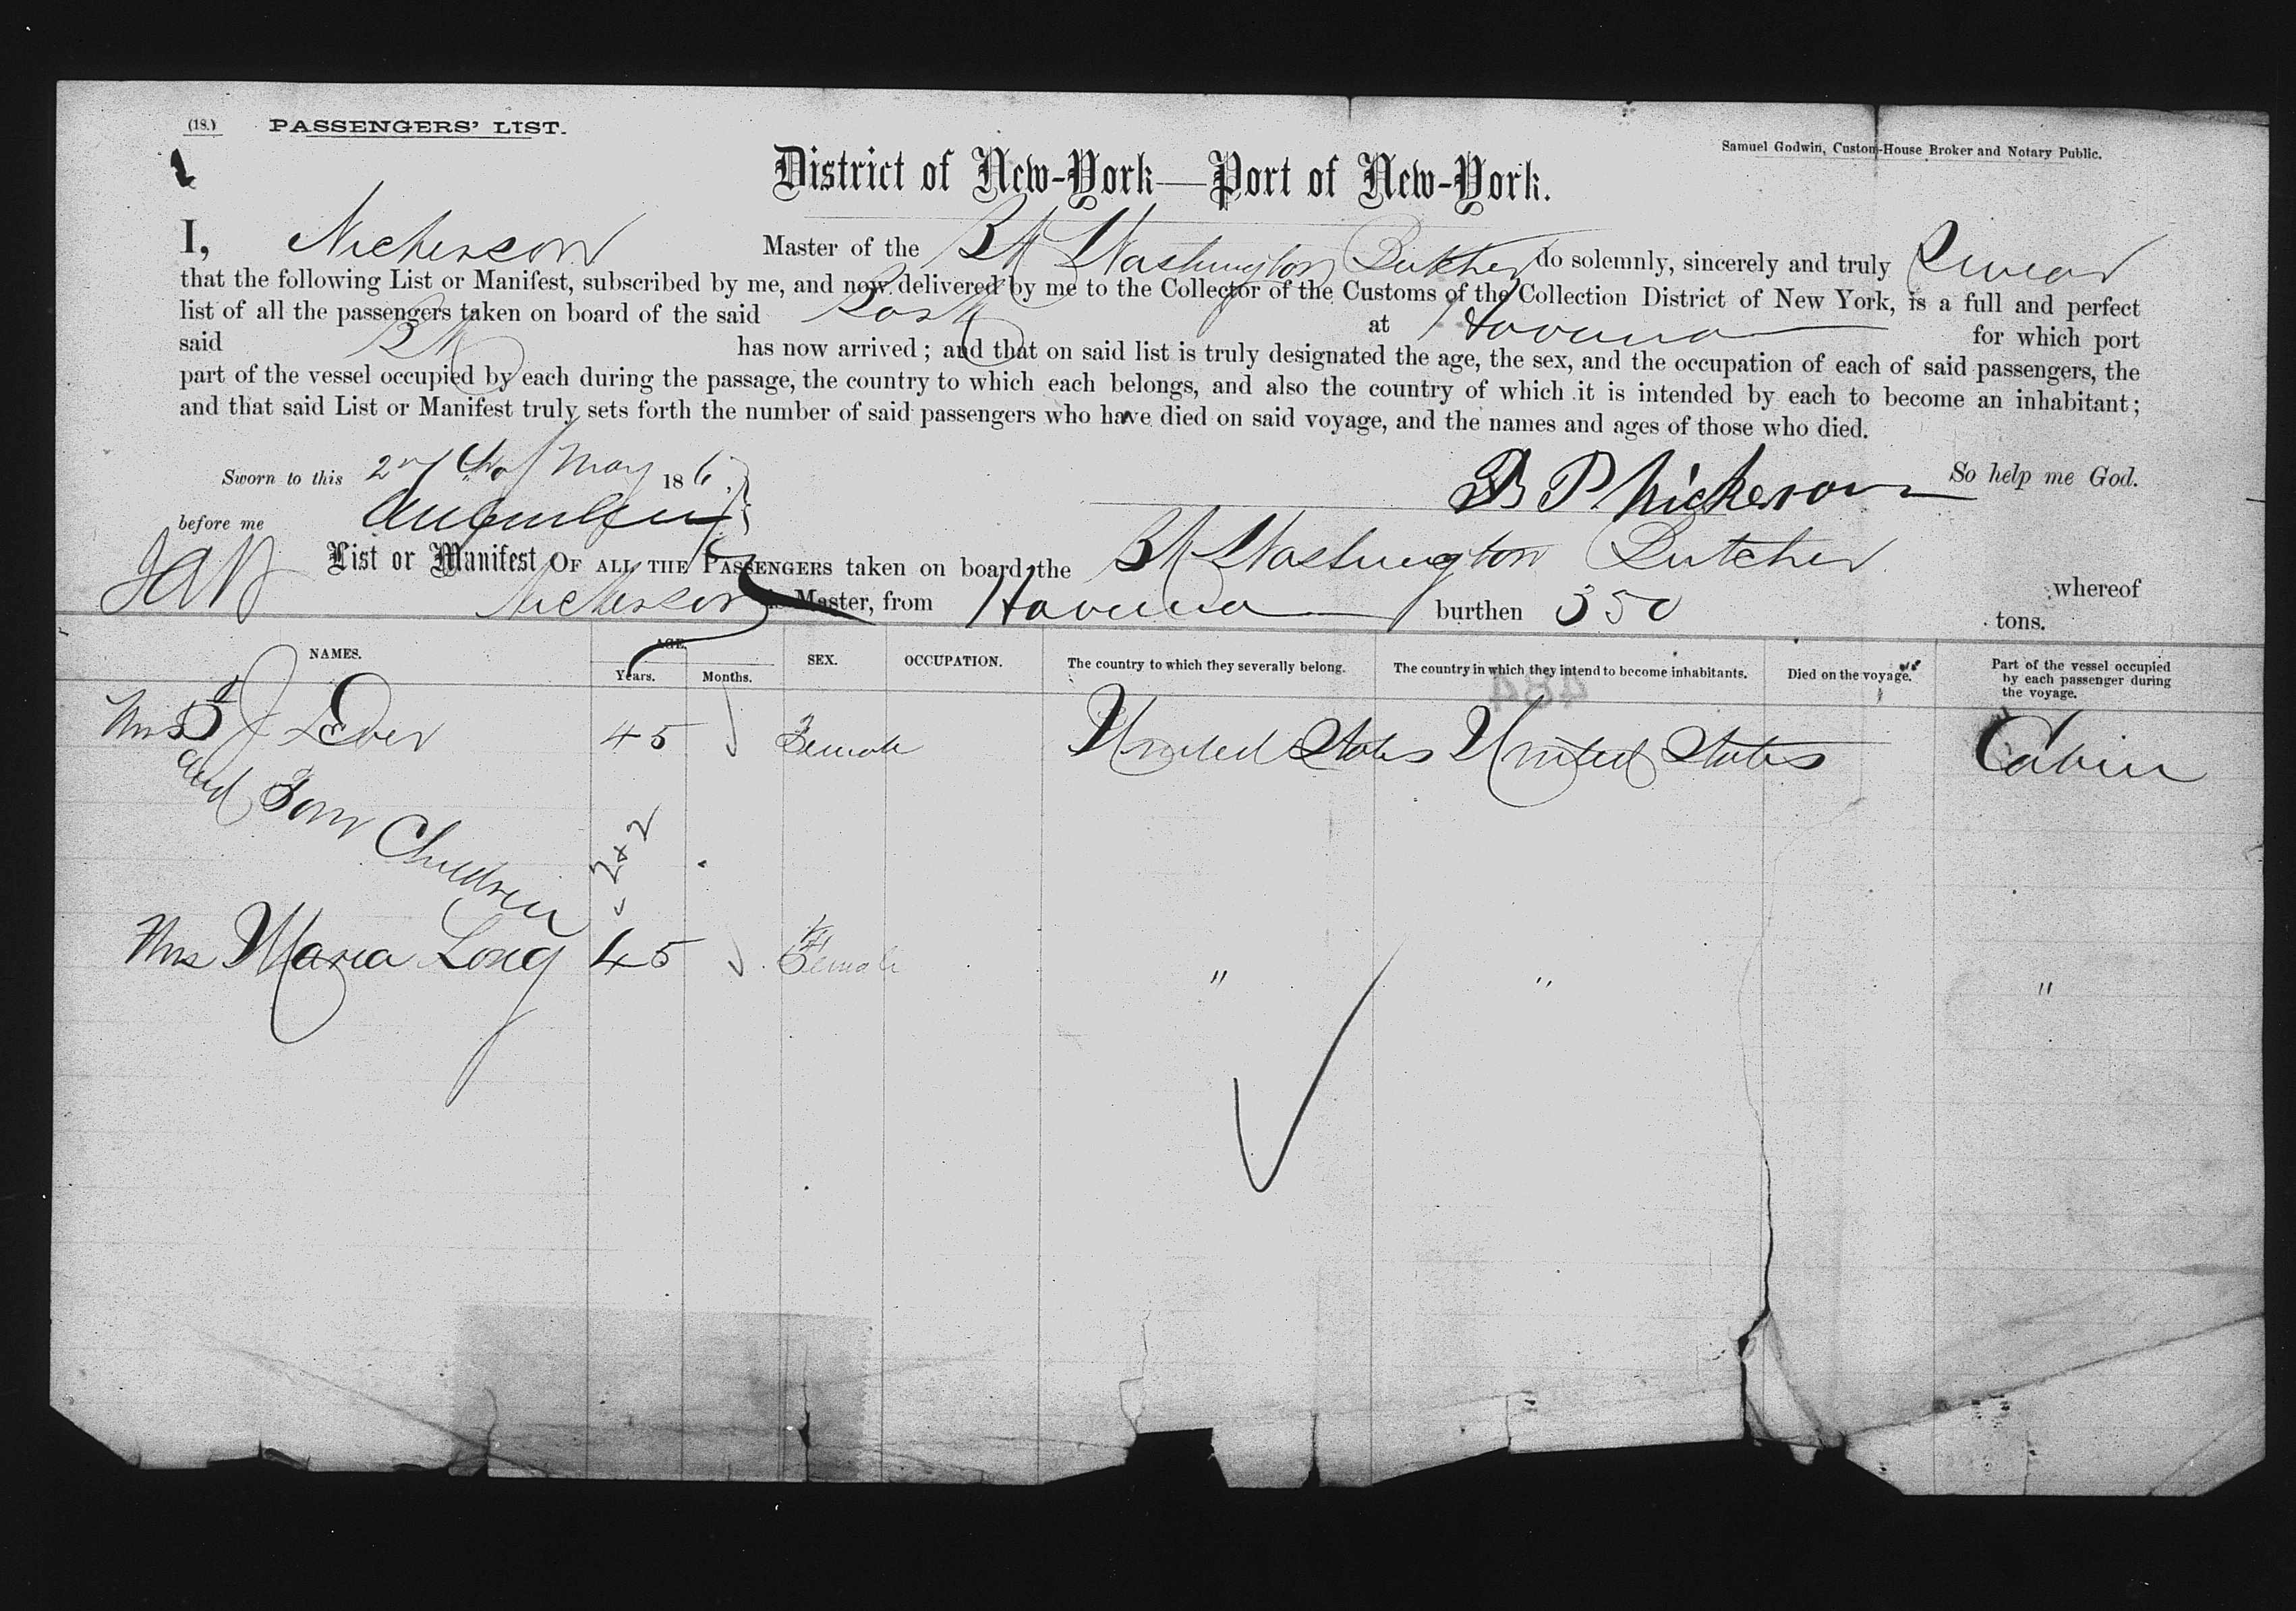 (18.) PASSENGERS' LIST.
Samuel Godwin, Custom-House Broker and Notary Public.
District of New-York—Port of New-York.
I, Nickerson Master of the Bk Washington Butcher do solemnly, sincerely and truly Swear
that the following List or Manifest, subscribed by me, and now delivered by me to the Collector of the Customs of the Collection District of New York, is a full and perfect
list of all the passengers taken on board of the said Bark at Havana for which port
said Bk has now arrived; and that on said list is truly designated the age, the sex, and the occupation of each of said passengers, the
part of the vessel occupied by each during the passage, the country to which each belongs, and also the country of which it is intended by each to become an inhabitant;
and that said List or Manifest truly sets forth the number of said passengers who have died on said voyage, and the names and ages of those who died.
Sworn to this May 186 So help me God.
before me B P Nickerson
List or Manifest OF ALL THE PASSENGERS taken on board the Bk Washington Butcher whereof
Nickerson is Master, from Havana burthen 350 tons.
NAMES. AGE. SEX. OCCUPATION. The country to which they severally belong. The country in which they intend to become inhabitants. Died on the voyage. Part of the vessel occupied by each passenger during the voyage.
Years. Months.
Mrs J 45 Female United States United States Cabin
and Four Children 2+2
Mrs Maria Long 45 Female " " "
484